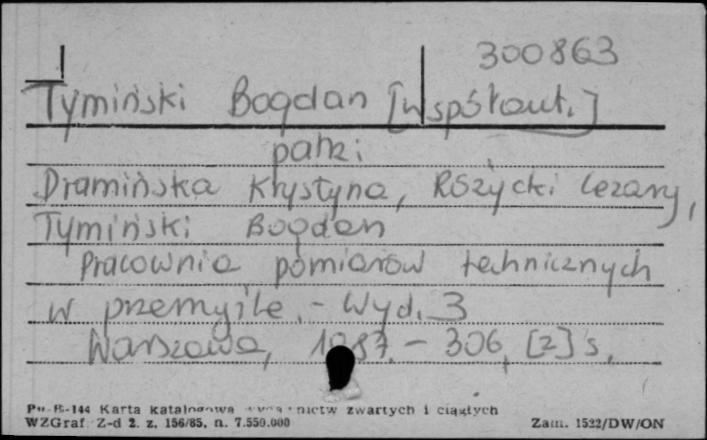 300863
Tymiński Bogdan [współaut.]
patrz:
Dramińska Krystyna, Różycki Cezary,
Tymiński Bogdan
Pracownia pomiarów technicznych
w przemyśle. - Wyd. 3
Warszawa, 1987. - 306, [2] s.
Pu-B-144 Karta katalogowa zwartych i ciągłych
WZGraf. Z-d 2. z. 156/85, n. 7.550.000 Zam. 1522/DW/ON